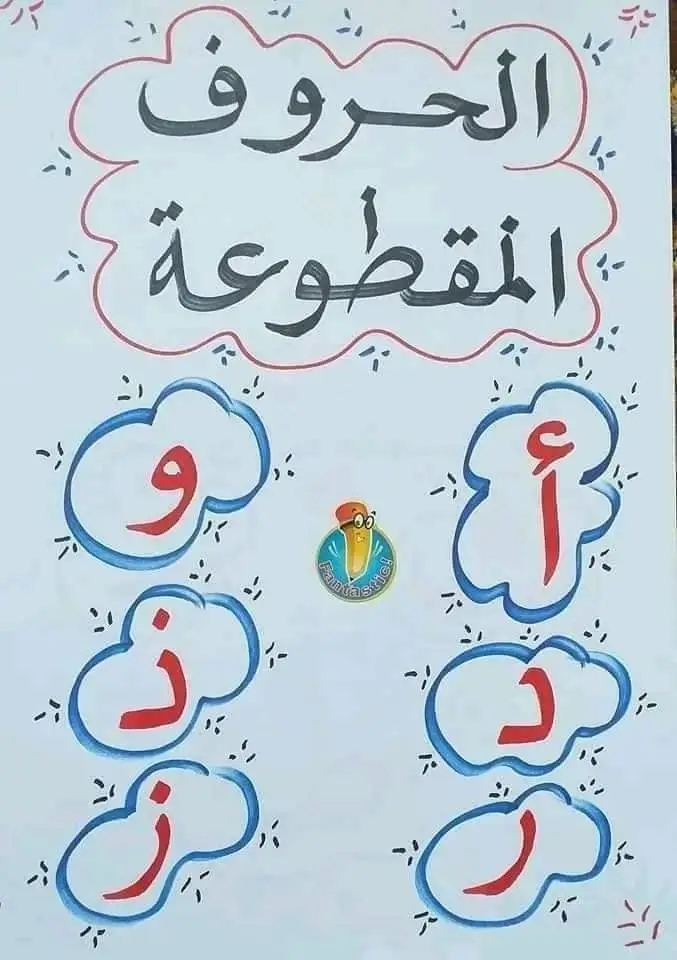 الحروف
المقطوعة
أ و
Fantastic!
د ذ
ر ز